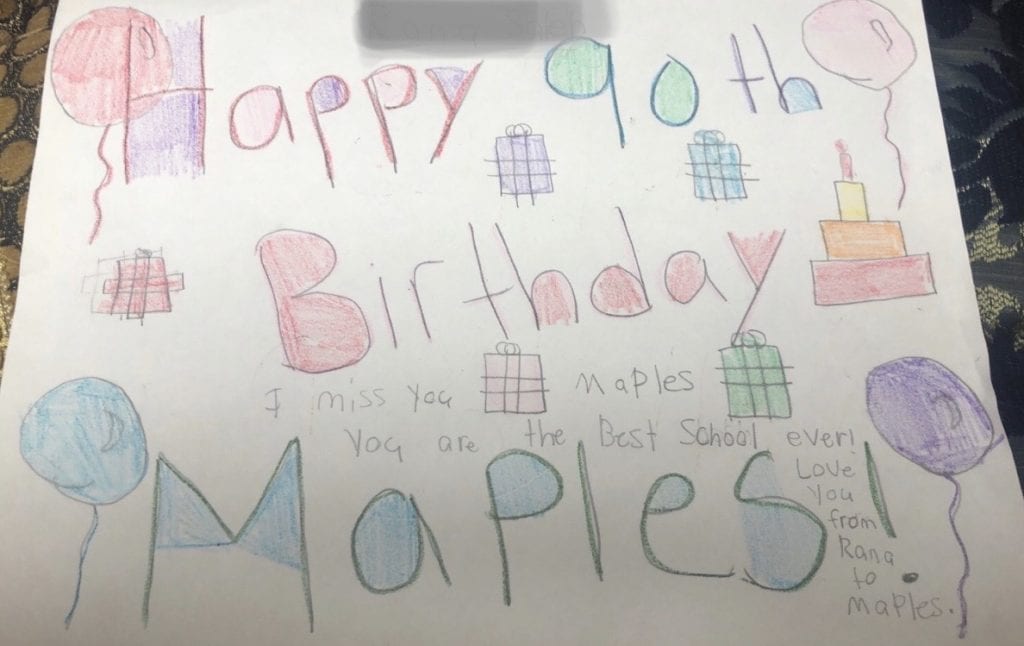 Happy 90th
Birthday
I miss you Maples
You are the Best School ever!
Maples!
Love
You
from
Rana
to
Maples.